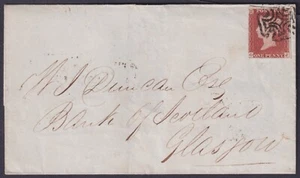 W J Duncan Esq
Bank of Scotland
Glasgow
ONE PENNY